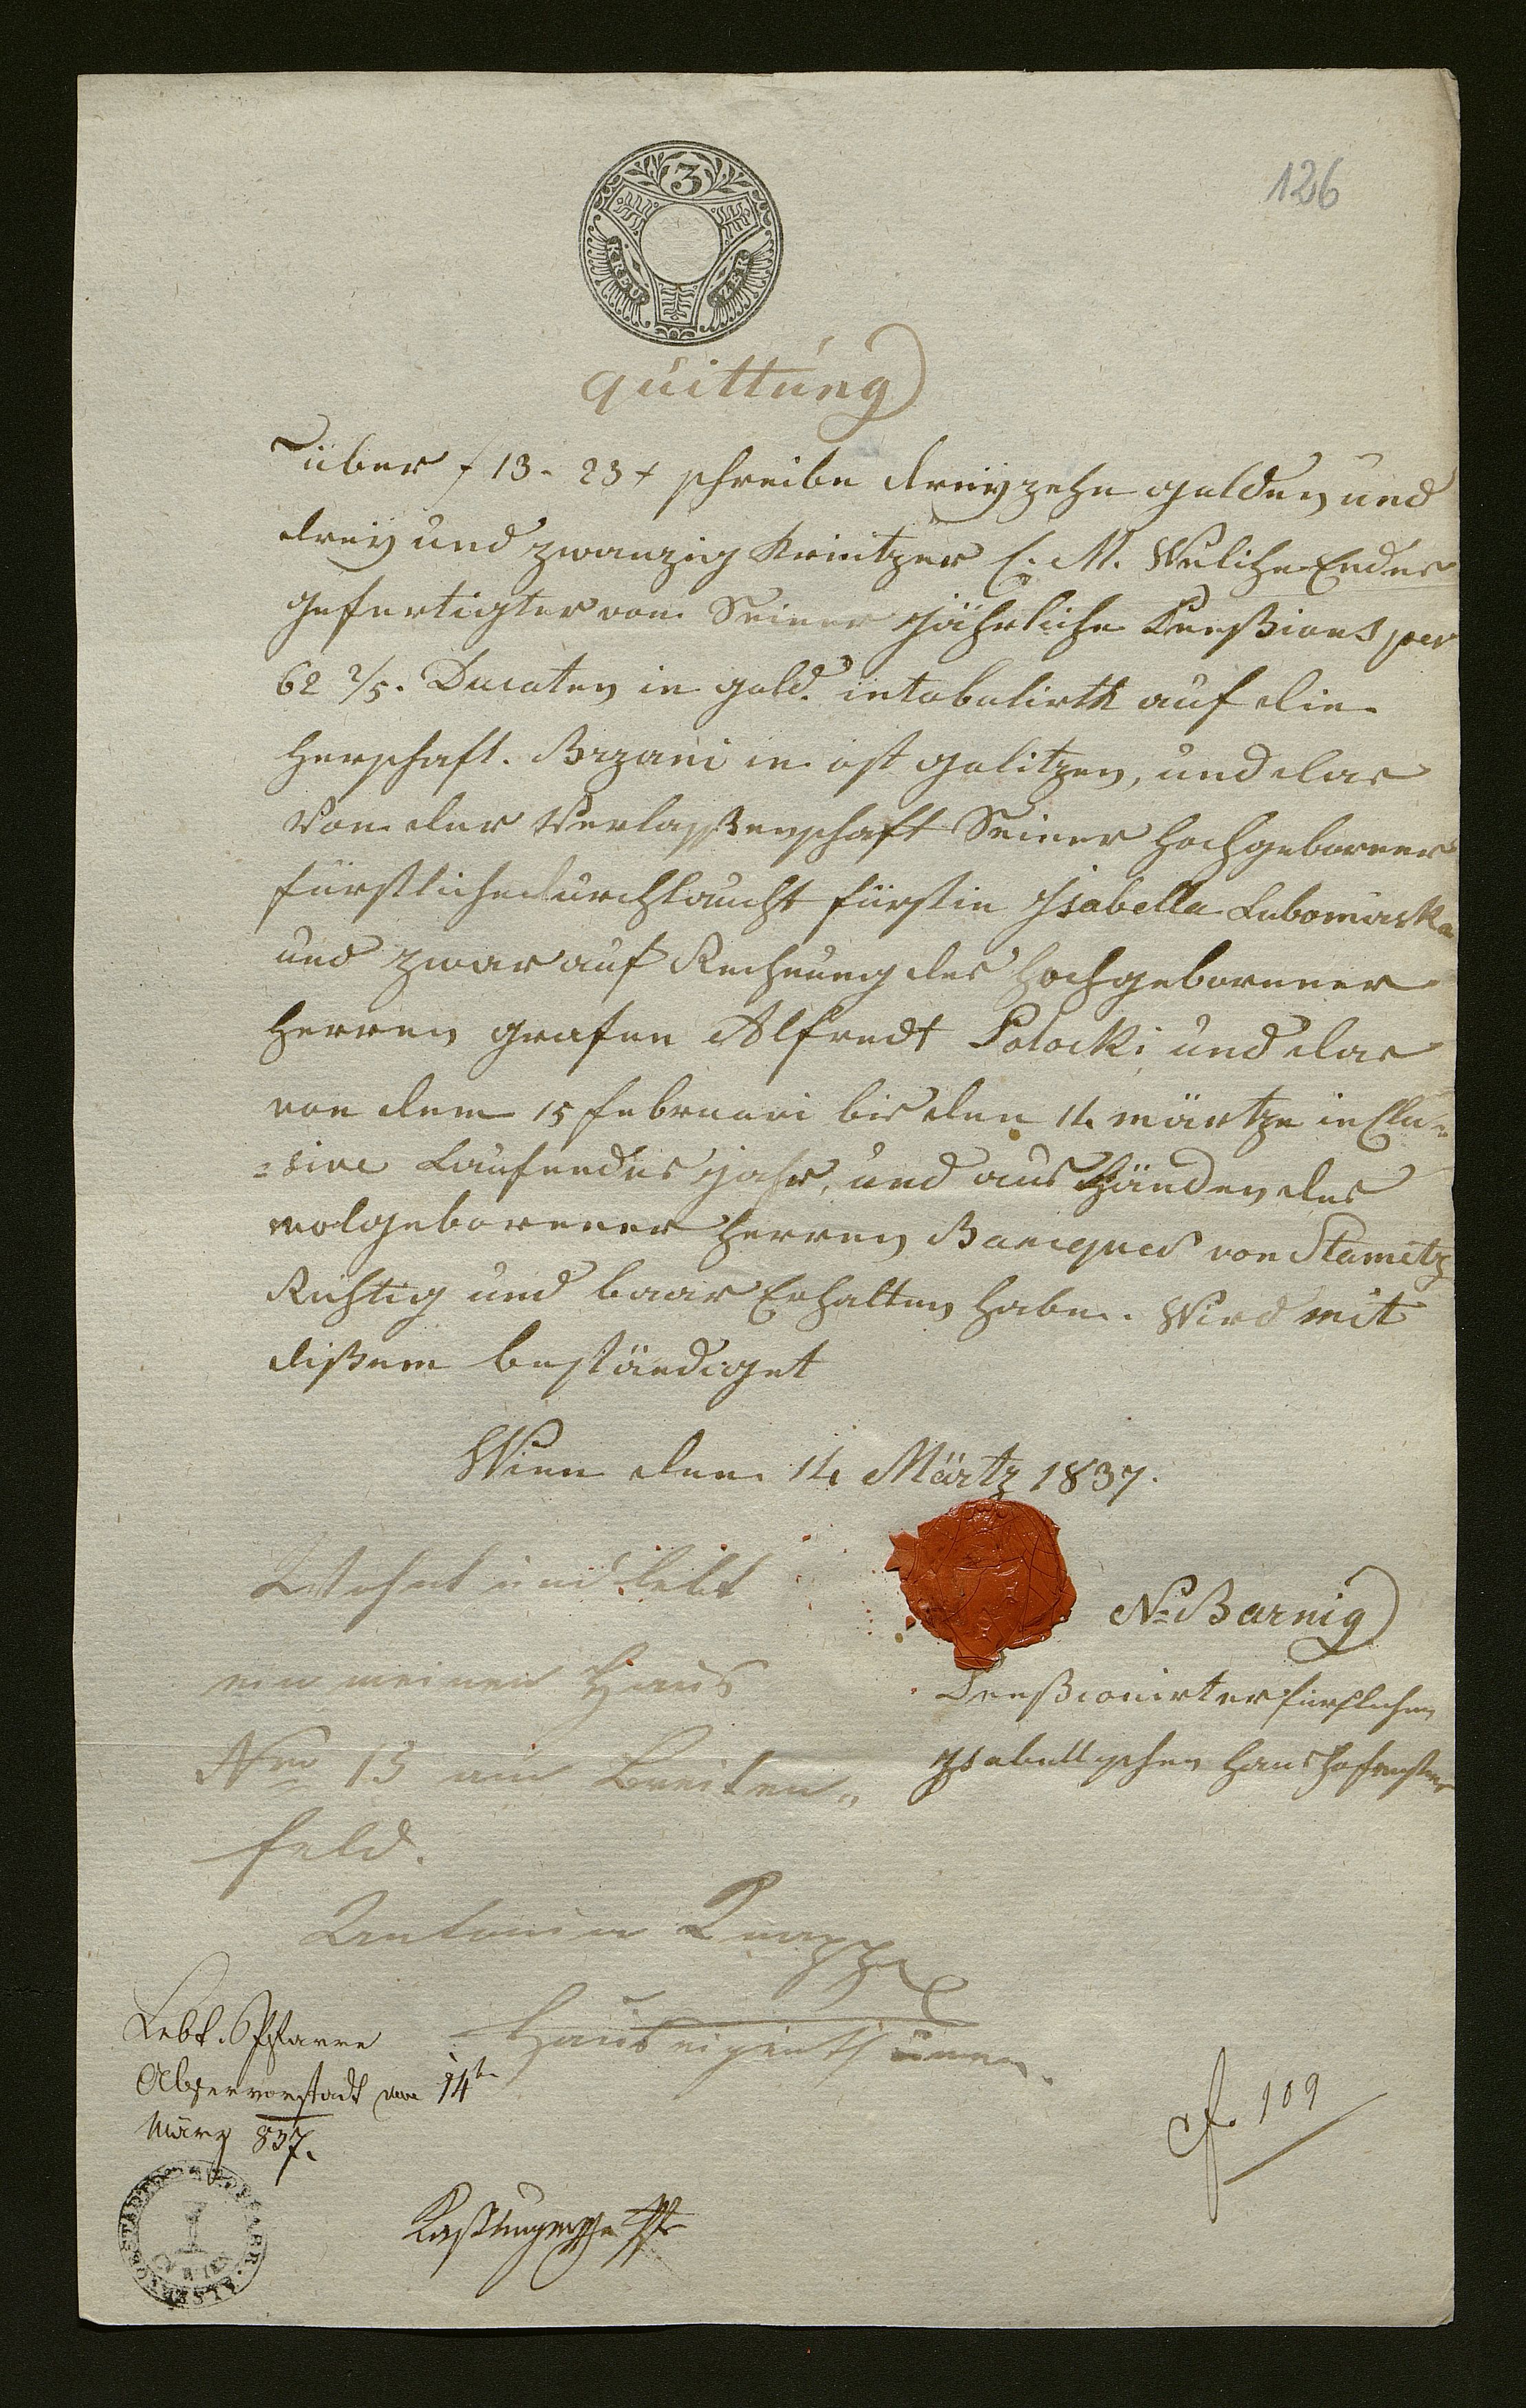 126
3
KREU ZER
quittung
über f 13. 23 x schreibe dreÿzehn gulden und
dreÿ und zwanzig Kreutzer C. M. Welche Endes
gefertigter von Seiner jährliche Penßions per
62 2/5. Ducaten in gold. intabulirth auf die
Herschaft. Brzani in ost galitzen, und das
Von der Verlaßßenschaft Seiner hochgeborner
fürstliche durchlaucht fürstin Isabella Lubomirska
und zwar auf Rechnung des Hochgeborener
Herren grafen Alfredt Potocki und das
von dem 15 februari bis den 14 märtze in Clu=
=sive Laufendes jahr, und aus Händen des
wolgeborener Herren Baniques von Stametz
Richtig und baar Erhalten habe. Wird mit
dißem beständiget
Wien den 14 Märtz 1837.
Wohnt und lebt
in meinen Haus
Nro 13 am Breiten=
feld.
N: Barnig
Penßionirter fürstlichen
Isabellischen Haushofmster
Antonia Knapp
Hauseigenthümerin.
Lebt. Pfarre
Alservorstadt den 14tn
März 837.
cf. 109